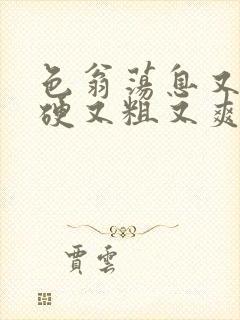 色翁荡息又
硬又粗又爽
贾云